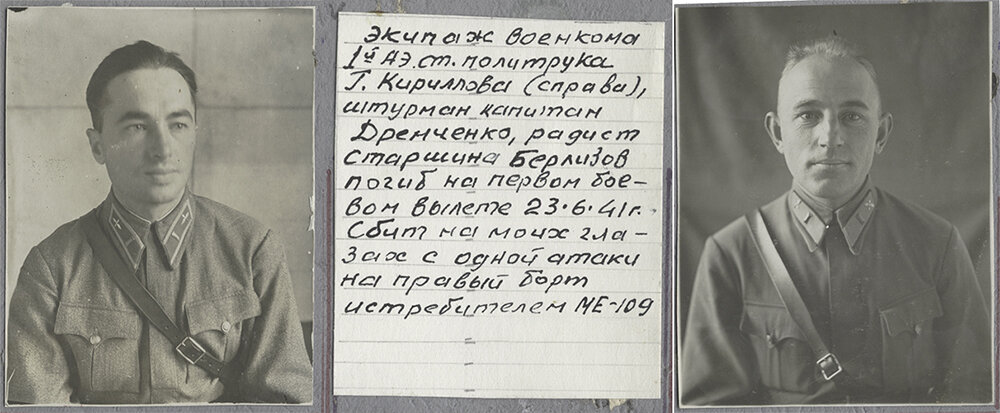 Экипаж военкома
1й АЭ.ст.политрука
Г. Кириллова (справа),
штурман капитан
Дремченко, радист
старшина Берлизов
погиб на первом бое-
вом вылете 23.6.41г.
Сбит на моих гла-
зах с одной атаки
на правый борт
истребителем МЕ-109